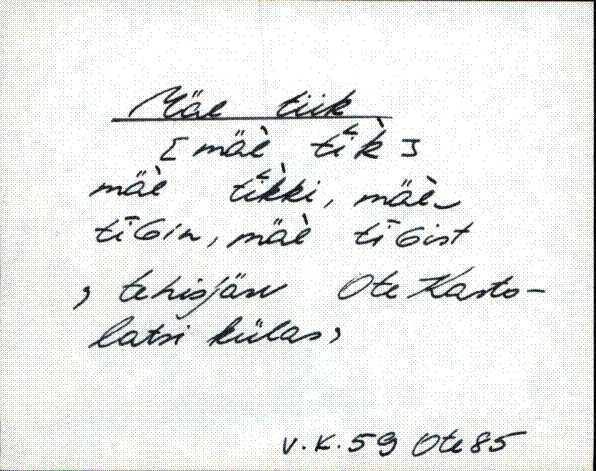 Mäe tiik
[mäè tī̬k̀]
mäè tī̬k̀ki, mäè_
tīGin, mäè tīGist
, tehisjärv Ote Kasto-
latsi külas,
V.K.59 Ote 85